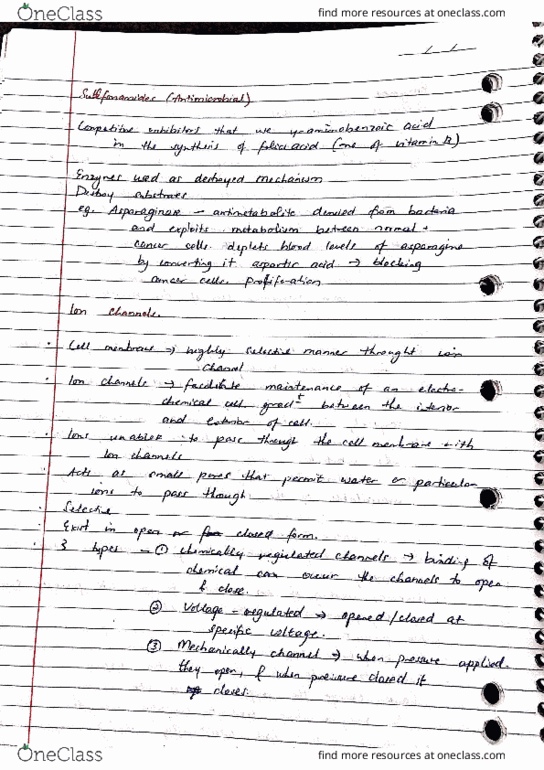 OneClass
find more resources at oneclass.com
Sulfonamides (Antimicrobial)
Competitive inhibitors that use aminobenzoic acid
in the synthesis of folic acid (one of vitamin B)
Enzymes used as destroyed mechanism
Destroy substrates
eg. Asparaginase – antimetabolite derived from bacteria
and exploits metabolism between normal +
cancer cells. deplets blood levels of asparagine
by converting it aspartic acid → blocking
cancer cells proliferation
Ion channels.
· Cell membrane → highly selective manner throught ion
channel
· Ion channels → facilitate maintenance of an electro-
chemical cell gradt between the interior
and exterior of cell.
· Ions unables to pass through the cell membrane with
Ion channels
· Acts as small pores that permit water or particular
ions to pass through
· Selective
· Exist in open or closed form.
· 3 types – ① chemically regulated channels → binding of
chemical can occur the channels to open
& close.
② Voltage – regulated → opened/closed at
specific voltage.
③ Mechanically channel → when pressure applied.
they open, & when pressure closed it
closes.
OneClass
find more resources at oneclass.com